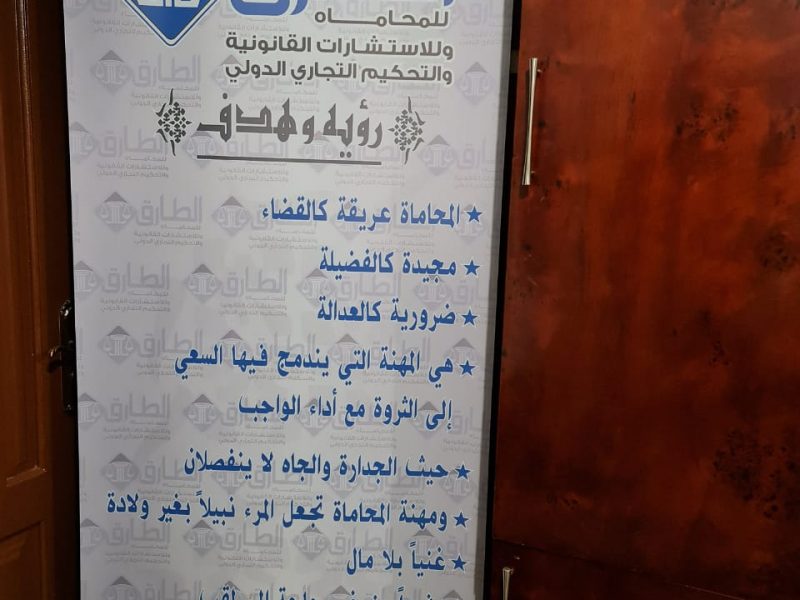 للمحاماه
وللاستشارات القانونية
والتحكيم التجاري الدولي
رؤيه وهدف
★ المحاماة عريقة كالقضاء
★ مجيدة كالفضيلة
★ ضرورية كالعدالة
★ هي المهنة التي يندمج فيها السعي
إلى الثروة مع أداء الواجب
★ حيث الجدارة والجاه لا ينفصلان
★ ومهنة المحاماة تجعل المرء نبيلاً بغير ولادة
★ غنياً بلا مال